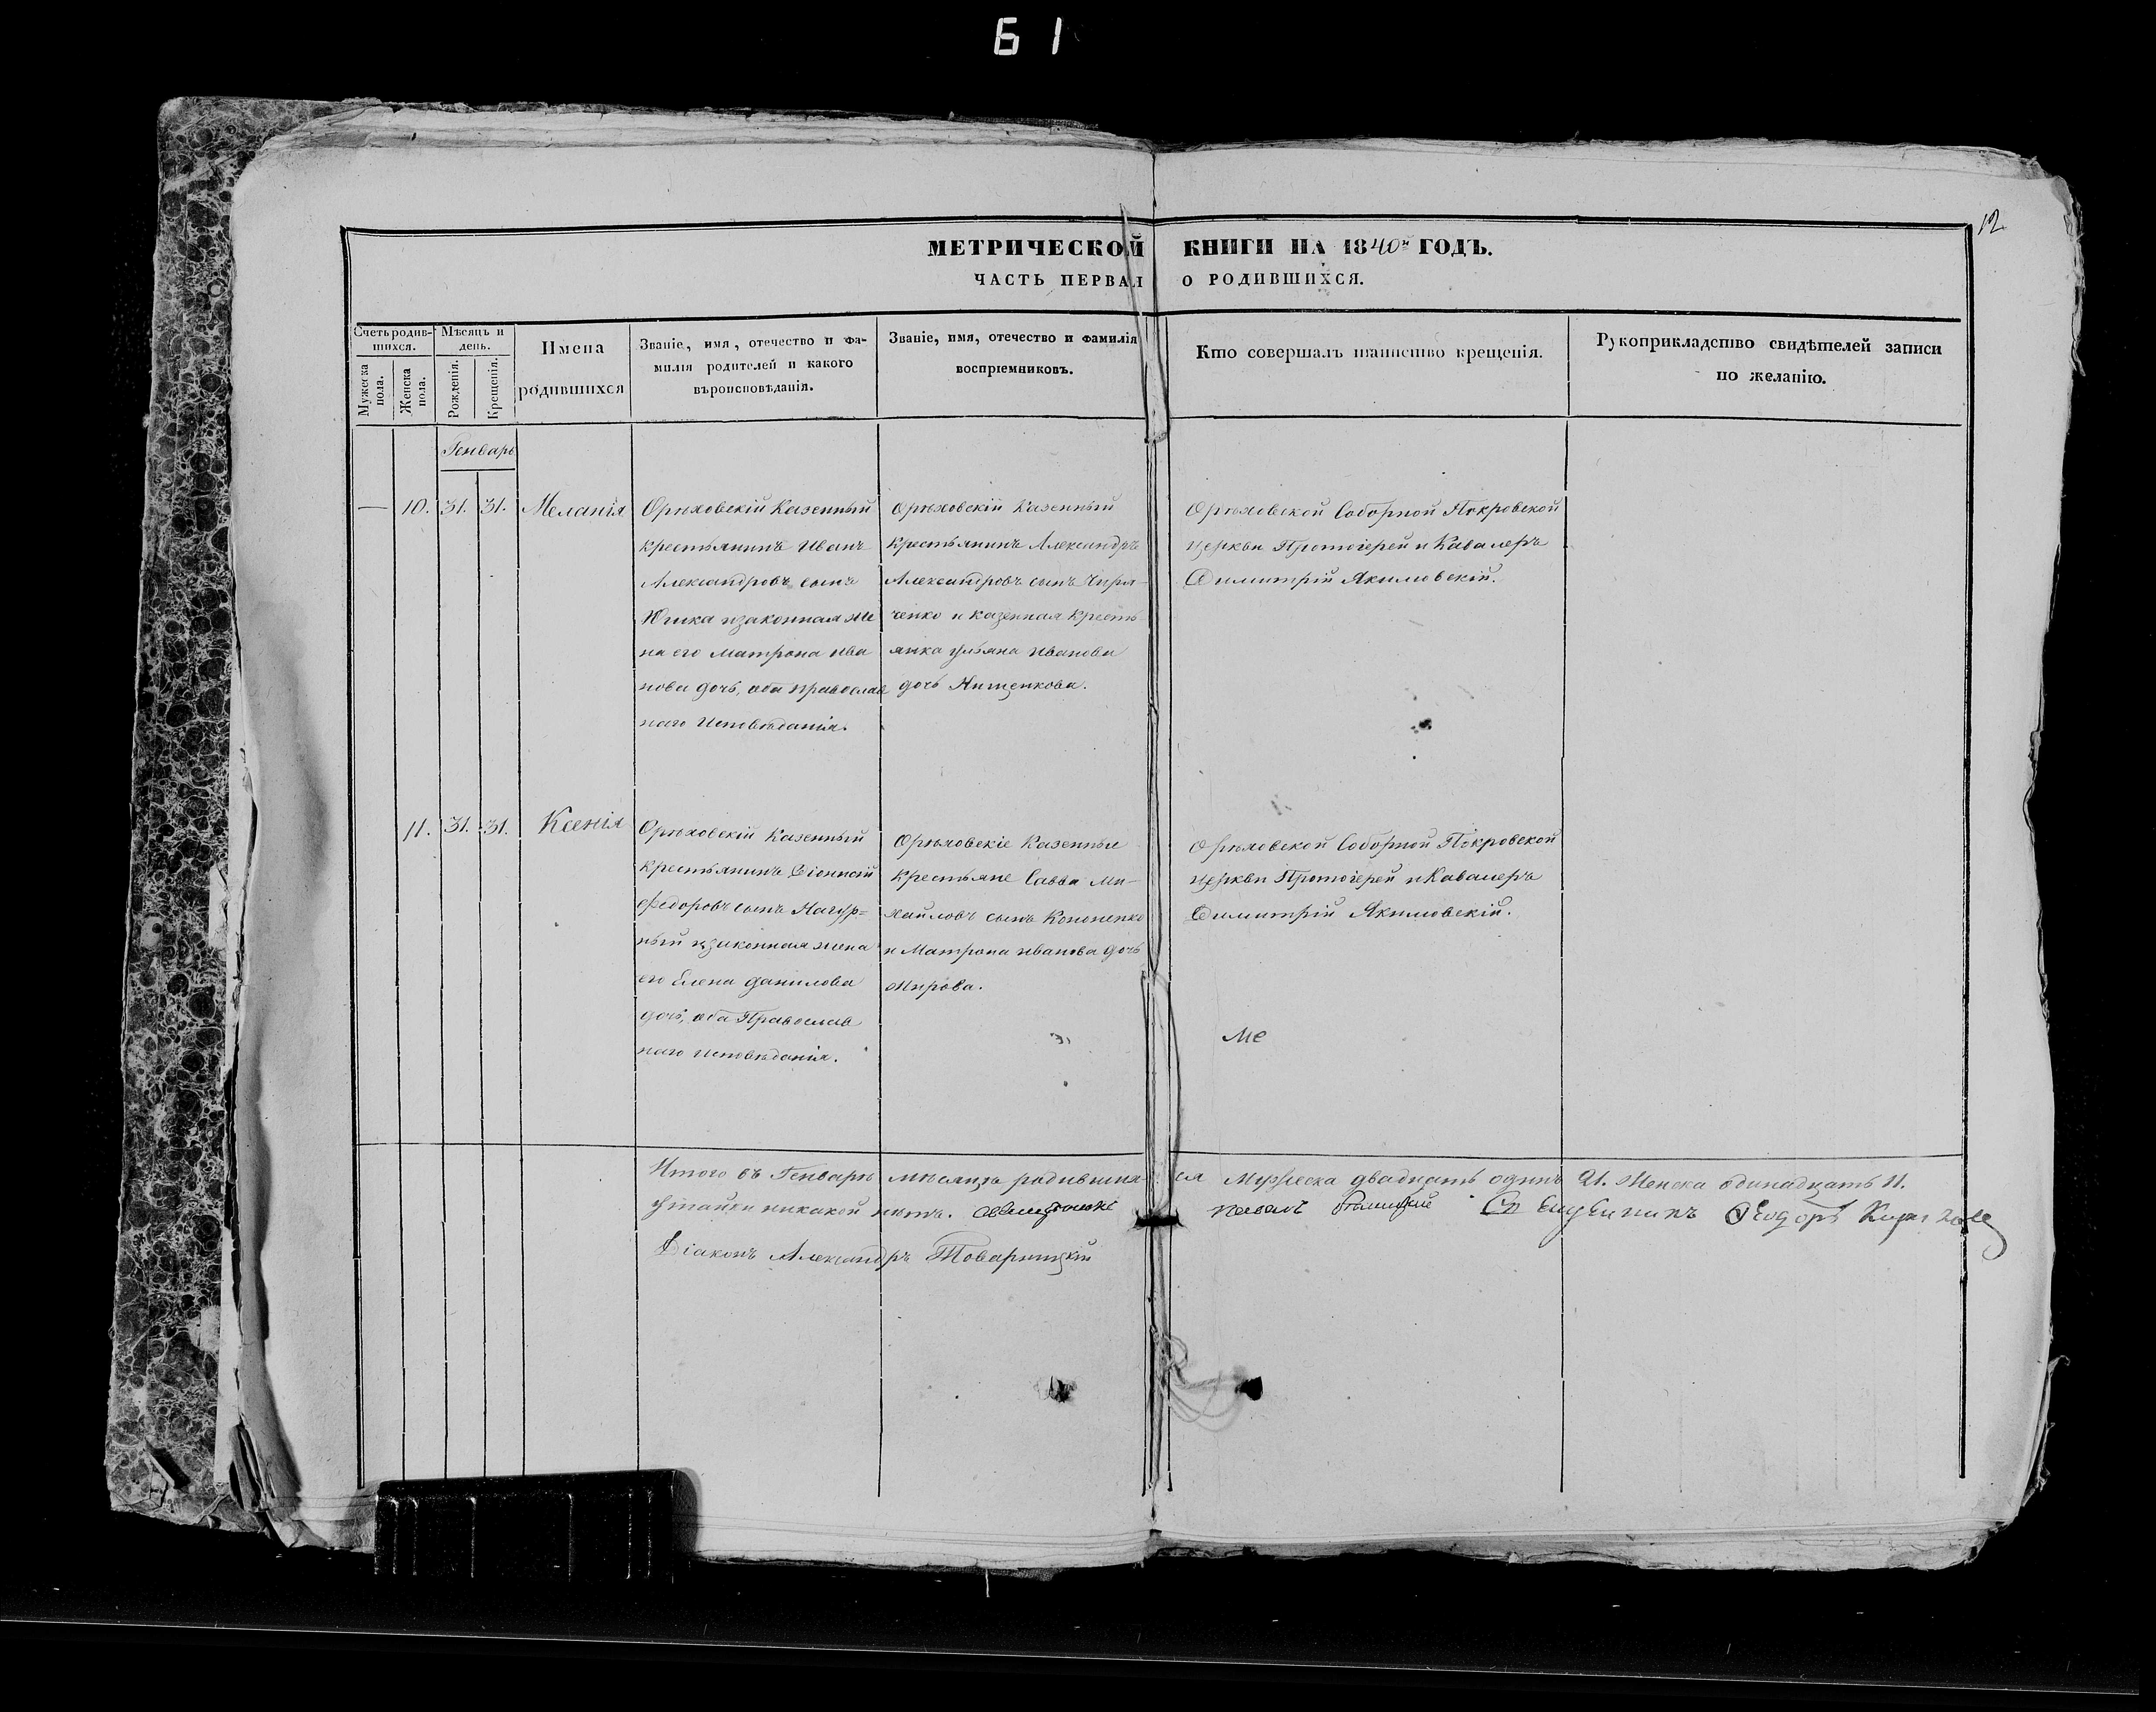 61
12
МЕТРИЧЕСКОЙ КНИГИ НА 1840й ГОДЪ.
ЧАСТЬ ПЕРВАЯ О РОДИВШИХСЯ.
Счетъ родившихся.
Мужеска пола.
Женска пола.
Мѣсяцъ и день.
Рожденія.
Крещенія.
Имена
родившихся
Званіе, имя, отечество и фа-
милія родителей и какого
вѣроисповѣданія.
Званіе, имя, отечество и фамилія
воспріемниковъ.
Кто совершалъ таинство крещенія.
Рукоприкладство свидѣтелей записи
по желанію.
Генварь
— 10. 31. 31. Меланія
Орѣховскій Казенный
крестьянинъ Иванъ
Александровъ сынъ
изаконная же
на его Матрона Ива
нова дочь, оба православ
наго Исповѣданія.
Орѣховскій Казенный
крестьянинъ Александръ
Александровъ сынъ Чиря-
ченко и казенная кресть-
янка Ульяна Иванова
дочь Нищенкова.
Орѣховской Соборной Покровской
церкви Протоіерей и Кавалеръ
Димитрій Якимовскій.
11. 31. 31. Ксенія
Орѣховскій Казенный
крестьянинъ Діонисій
Федоровъ сынъ Нагур=
ный изаконная жена
его Елена Данилова
дочь, оба Православ
наго Исповѣданія.
Орѣховскіе Казенные
крестьяне Савва Ми-
хайловъ сынъ Кононенко
и Матрона Иванова дочь
Мирова.
Орѣховской Соборной Покровской
церкви Протоіерей и Кавалеръ
Димитрій Якимовскій.
Ме
Итого въ Генварѣ мѣсяцѣ родивших-ся Мужеска двадцать одинъ 21. Женска одинадцать 11.
Утайки никакой нѣтъ. Священникъ Феодоръ
Діаконъ Александръ Товарницкій